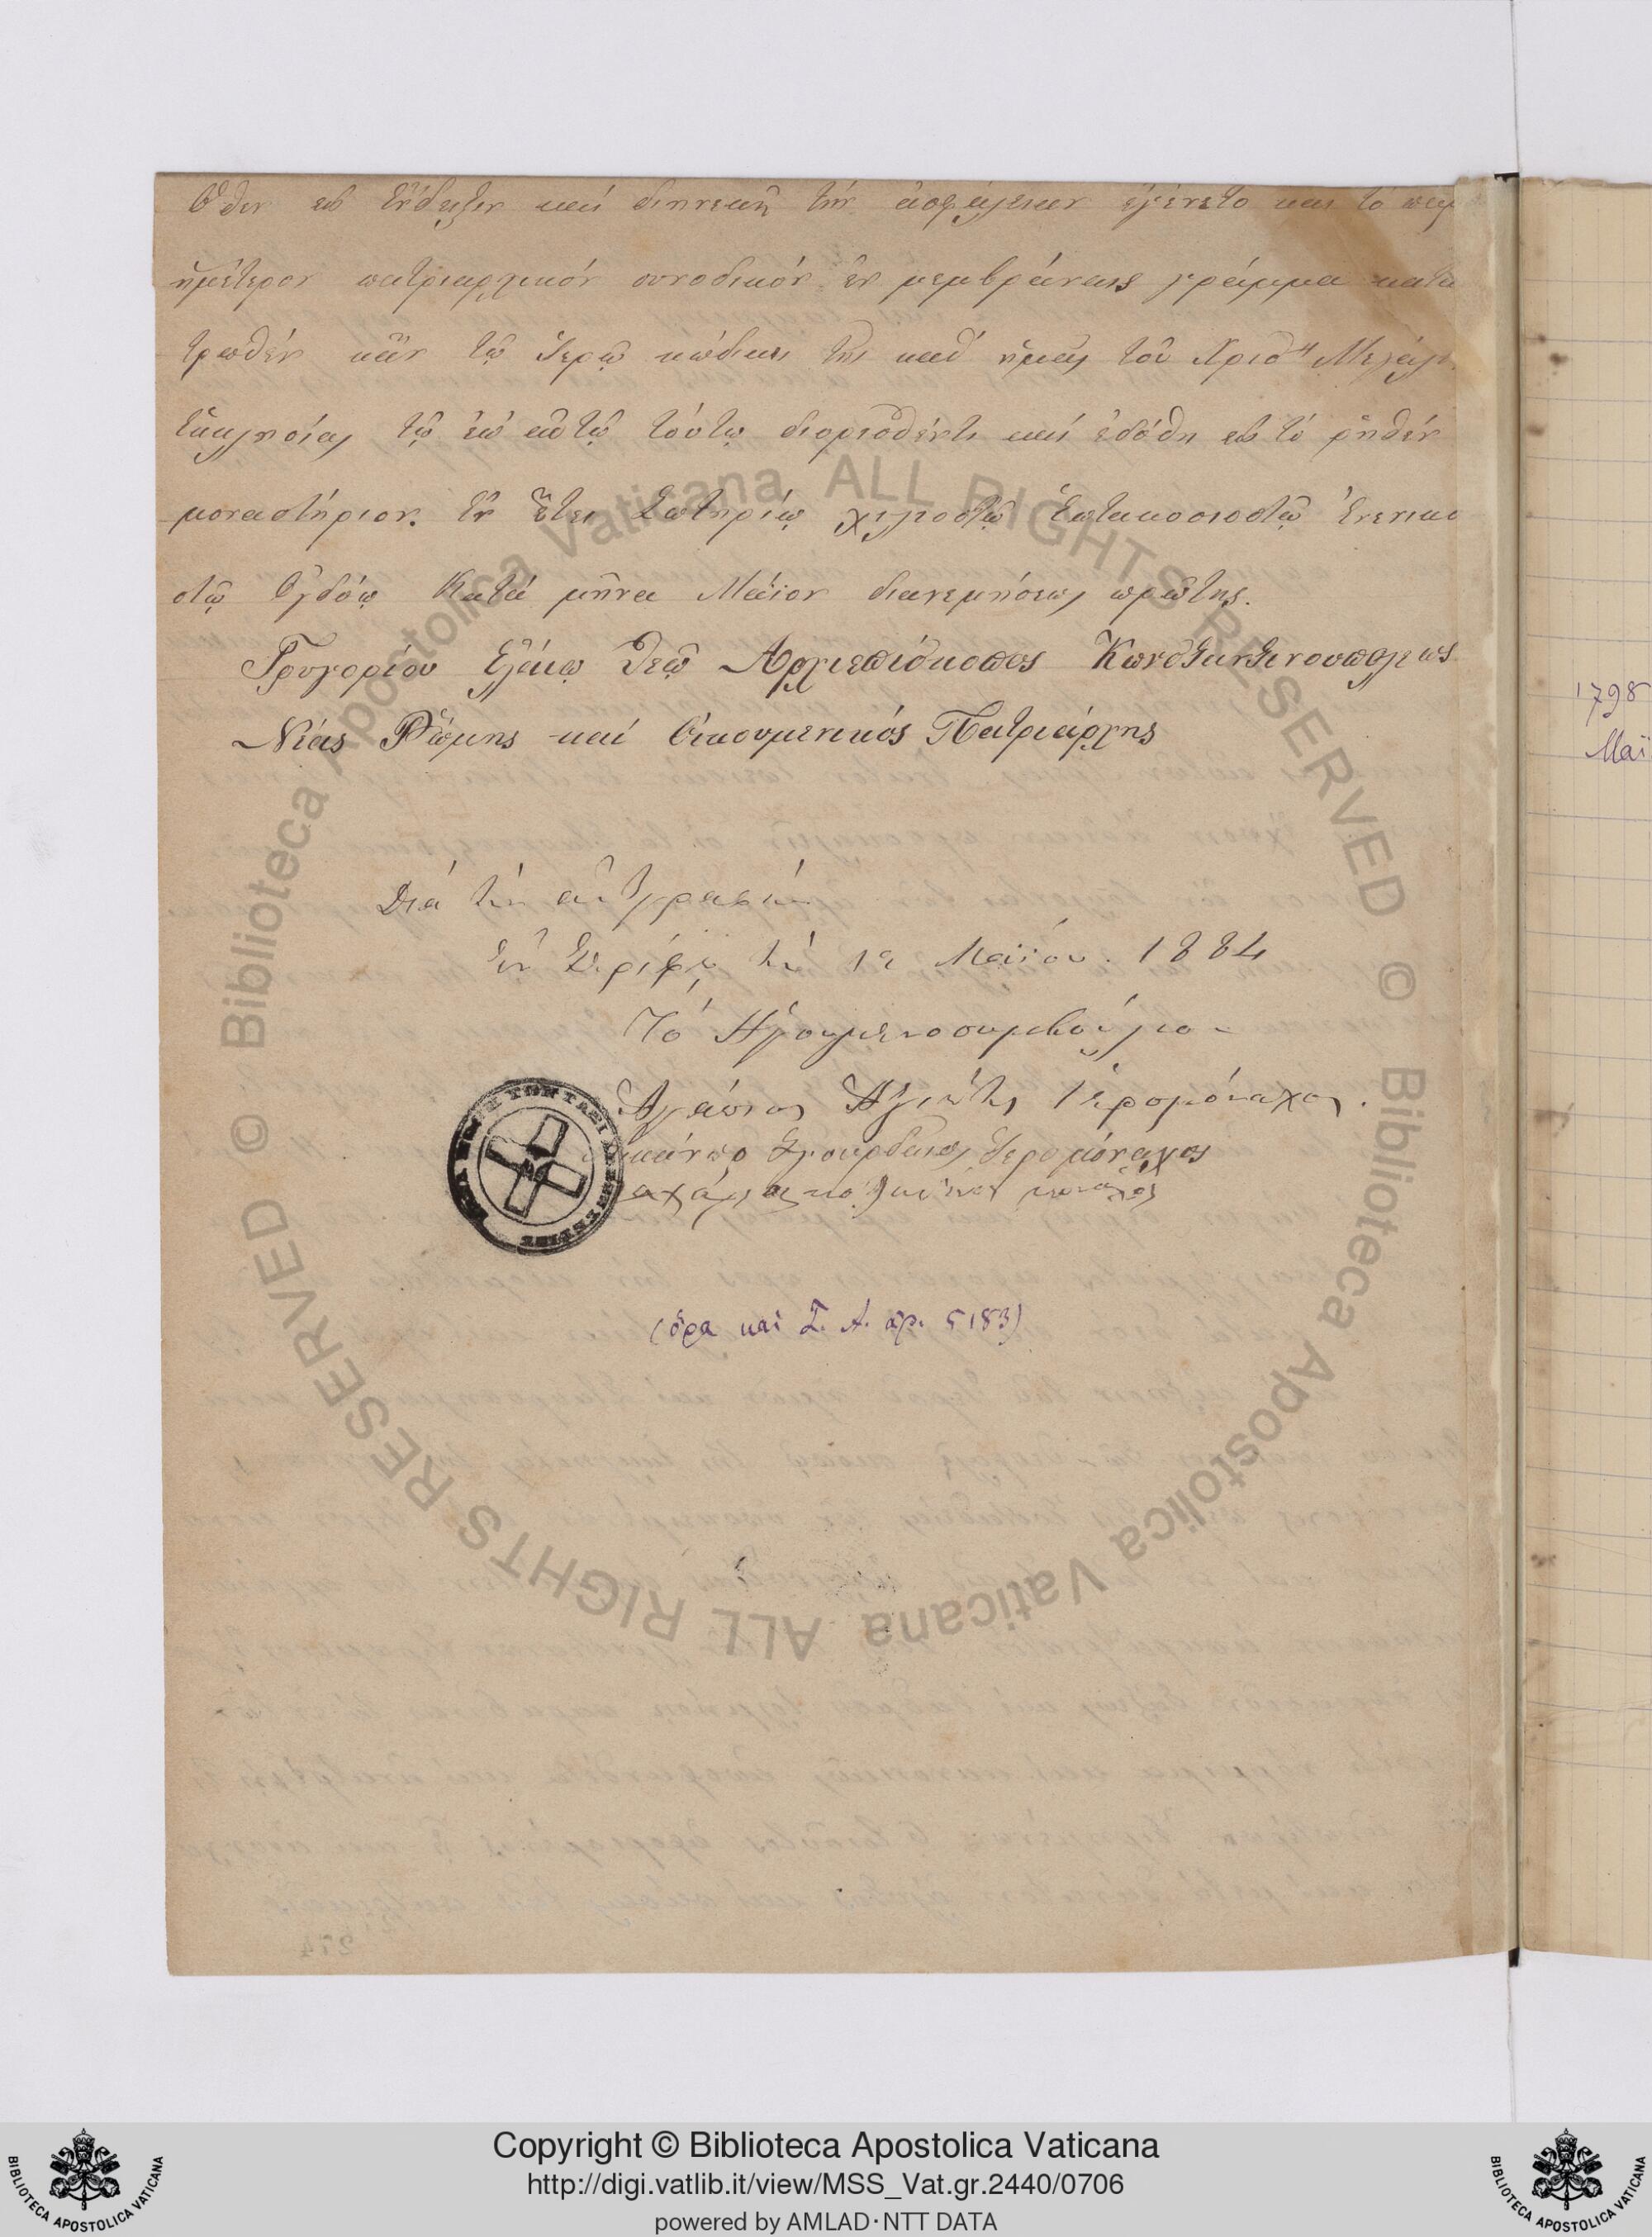 Ὅθεν εἰς ἔνδειξιν καί διηνεκῆ τήν ἀσφάλειαν ἐγένετο και τό παρ
ἡμέτερον πατριαρχικόν συνοδικόν ἐν μεμβράναις γράμμα κατα
τρωθέν κἄν τῷ ἱερῷ κώδικι τῆς καθ' ἡμᾶς τοῦ Χριστ Μεγάλ
Ἐκκλησίας τῷ ἐπ αὐτῷ τούτῳ διορισθέντι καί ἐδόθη εἰς τό ῥηθέν
μοναστήριον. Ἐν ἔτει Σωτηρίῳ χιλιοστῷ ἑπτακοσιοστῷ ἐνενικο
στῷ Ὀγδόῳ Κατά μῆνα Μάϊον διανεμήσεως πρώτης.
Γρυγορίου Ἐλέκῳ Θεῷ Αρχιεπίσκοπος Κωνσταντινουπόλεως
Νέας Ῥώμης καί Οἰκουμενικός Πατριάρχης
Διά τήν ἀντιγραφήν
Ἐν Σερίφῳ τῇ 12 Μαΐου. 1884
Τό Ηγουμενοσυμβούλιον
Ἀγάπιος Ἱερομόναχος.
Ἱερομόναχος
μοναχός
(ὅρα και Σ. Α. ἀρ. 5183)
1798
Μαΐ
274
Copyright © Biblioteca Apostolica Vaticana
http://digi.vatlib.it/view/MSS_Vat.gr.2440/0706
powered by AMLAD·NTT DATA
BIBLIOTECA APOSTOLICA VATICANA
BIBLIOTECA APOSTOLICA VATICANA
© Biblioteca Apostolica Vaticana ALL RIGHTS RESERVED © Biblioteca Apostolica Vaticana ALL RIGHTS RESERVED